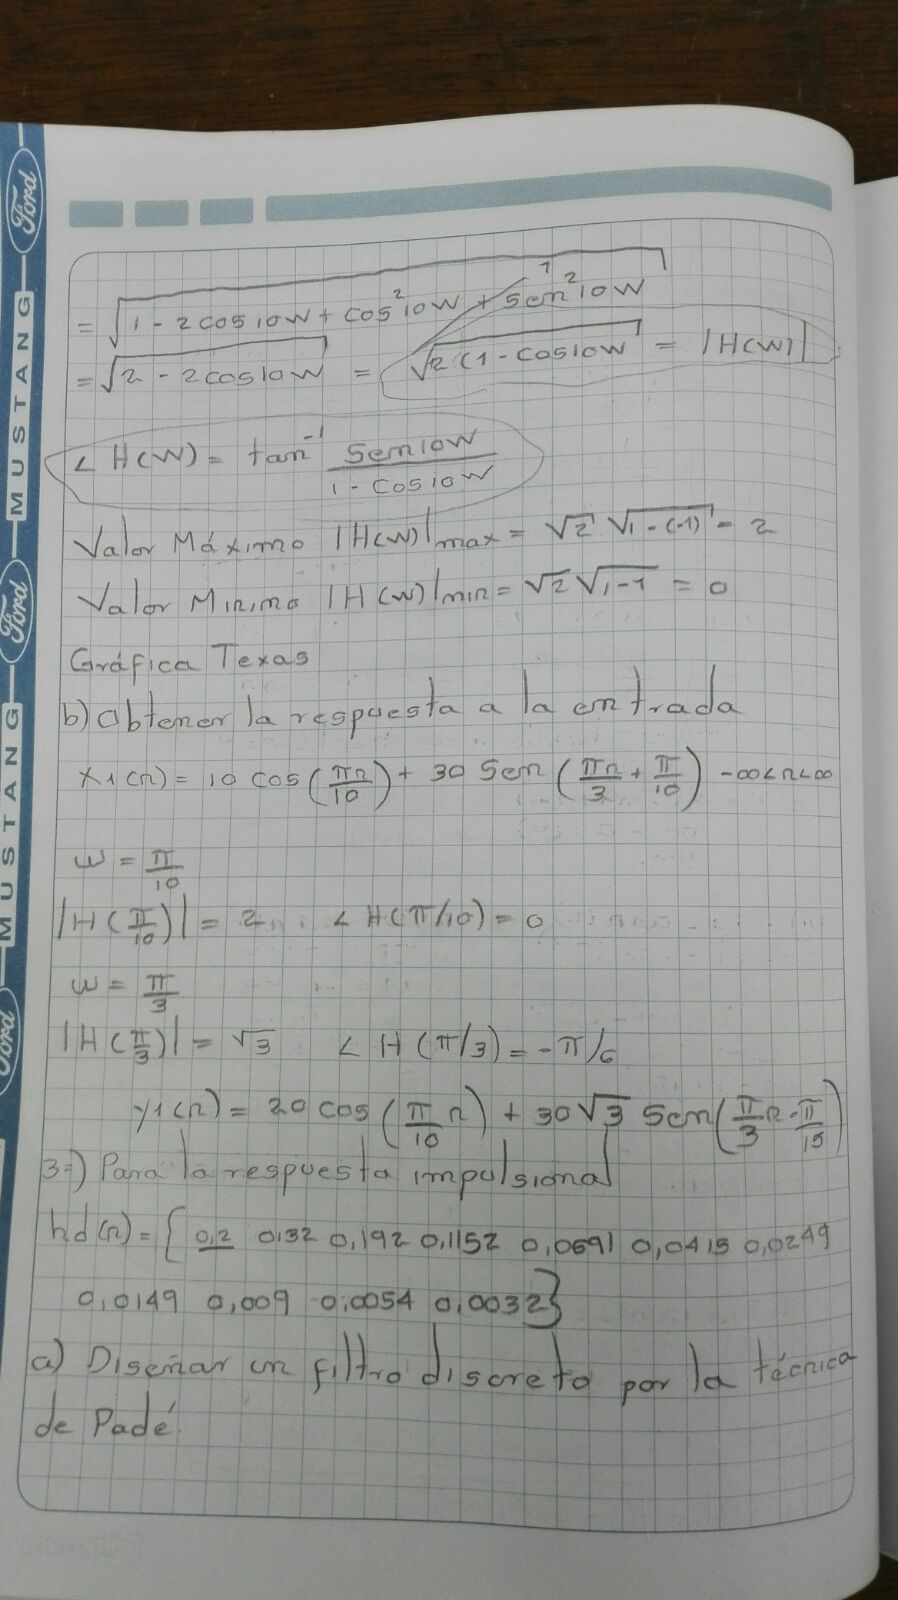 = √(1 - 2 cos 10W + cos² 10W + sen² 10W) 1
= √(2 - 2 cos 10W) = √(2 (1 - cos 10W)) = |H(W)|
∠ H(W) = tan⁻¹ sen 10W / (1 - cos 10W)
Valor Máximo |H(W)|max = √2 √(1-(-1)) = 2
Valor Minimo |H(W)|min = √2 √(1-1) = 0
Gráfica Texas
b) Obtener la respuesta a la entrada
x1(n) = 10 cos(πn/10) + 30 Sen(πn/3 + π/10) -∞<n<∞
ω = π/10
|H(π/10)| = 2 ∠ H(π/10) = 0
ω = π/3
|H(π/3)| = √3 ∠ H(π/3) = -π/6
y1(n) = 20 cos(π/10 n) + 30√3 Sen(π/3 n - π/15)
3-) Para la respuesta impulsional
hd(n) = { 0,2 0,32 0,192 0,1152 0,0691 0,0415 0,0249
0,0149 0,009 0,0054 0,0032}
a) Diseñar un filtro discreto por la técnica
de Padé
Ford
MUSTANG
Ford
MUSTANG
Ford